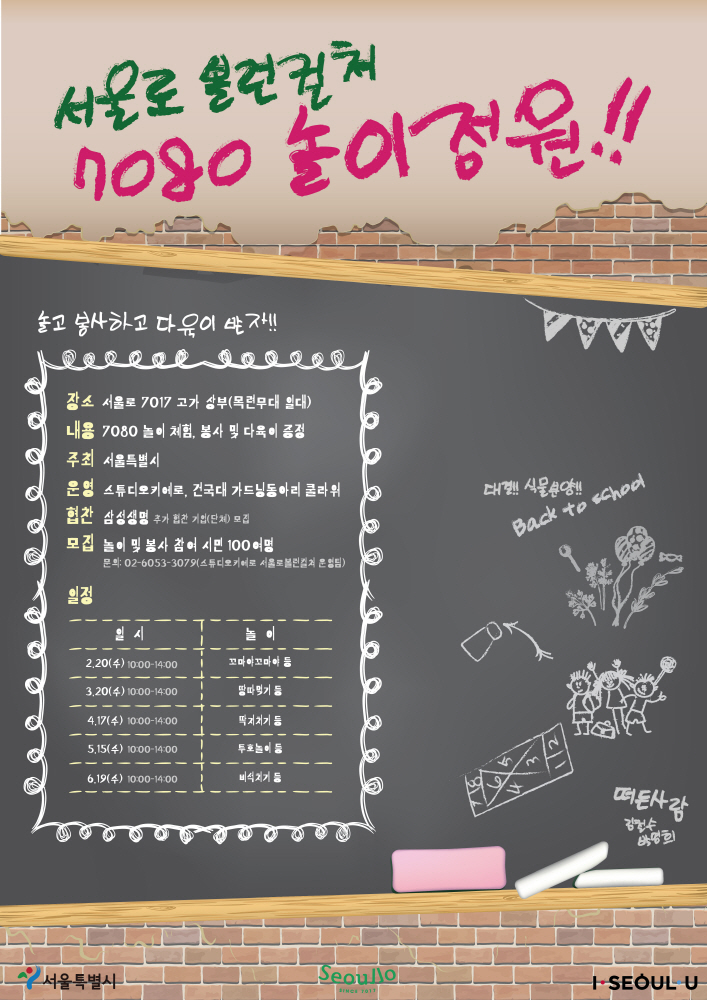 서울로 볼런컬처
7080 놀이정원!!
놀고 봉사하고 다육이 받자!!
장소 서울로 7017 고가 상부(목련무대 일대)
내용 7080 놀이 체험, 봉사 및 다육이 증정
주최 서울특별시
운영 스튜디오키에로, 건국대 가드닝동아리 쿨라워
협찬 삼성생명 추가 협찬 기업(단체) 모집
모집 놀이 및 봉사 참여 시민 100여명
문의: 02-6053-3079(스튜디오키에로 서울로볼런컬처 운영팀)
일정
일 시 놀 이
2.20(수) 10:00-14:00 꼬마야꼬마야 등
3.20(수) 10:00-14:00 땅따먹기 등
4.17(수) 10:00-14:00 딱지치기 등
5.15(수) 10:00-14:00 투호놀이 등
6.19(수) 10:00-14:00 비석치기 등
대결!! 식물분양!!
Back to school
떠든사람
김철수
박영희
서울특별시
Seoullo
SINCE 2017
I·SEOUL·U